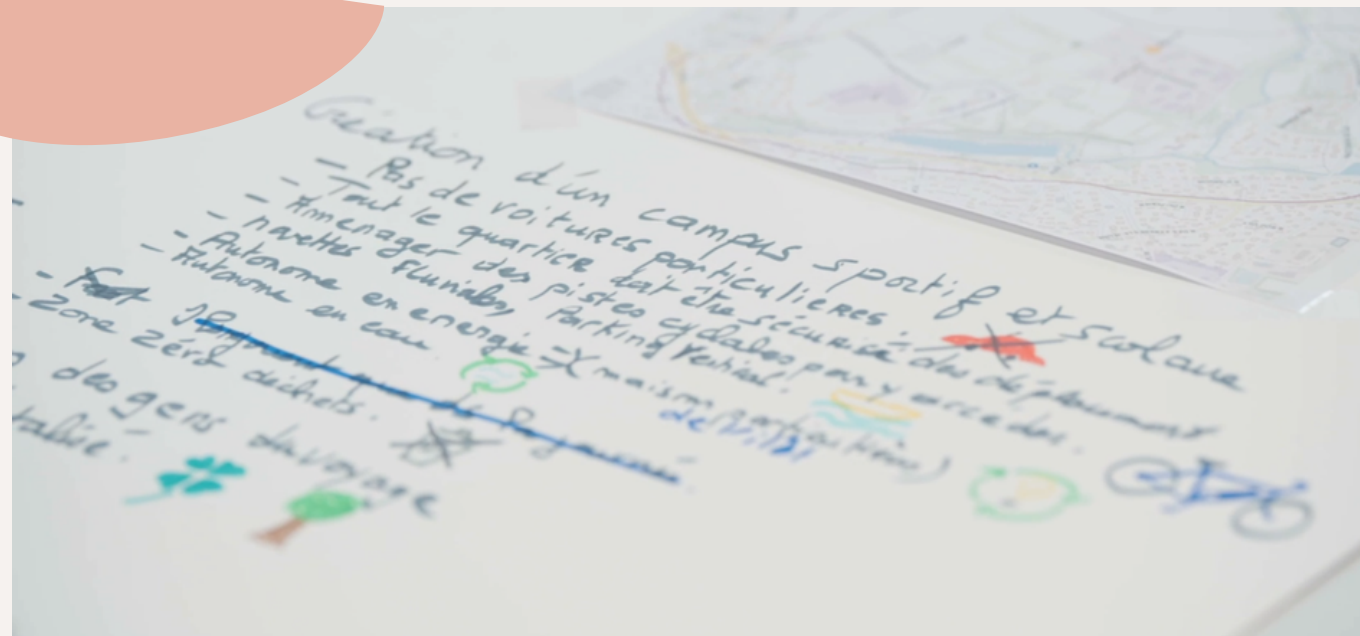 Création d'un campus sportif et scolaire
- Pas de voitures particulières.
- Tout le quartier doit être sécurisé: des déplacement
- Aménager des pistes cyclables pour y accéder.
- navettes fluviales, Parking vertical.
- Autonome en energie (maison
de ville
- Autonome en eau.
- Zone zéro déchets.
des gens du voyage